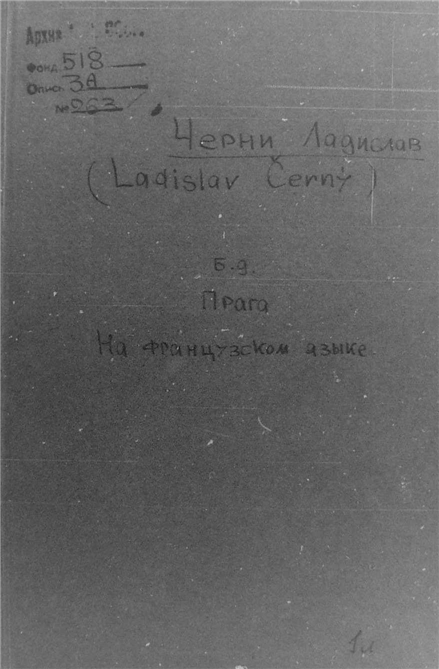 Архив
Фонд 518
Опись 3А
№ 263
Черни Ладислав
(Ladislav Černý)
Б.д.
Прага
На французском языке.
1л